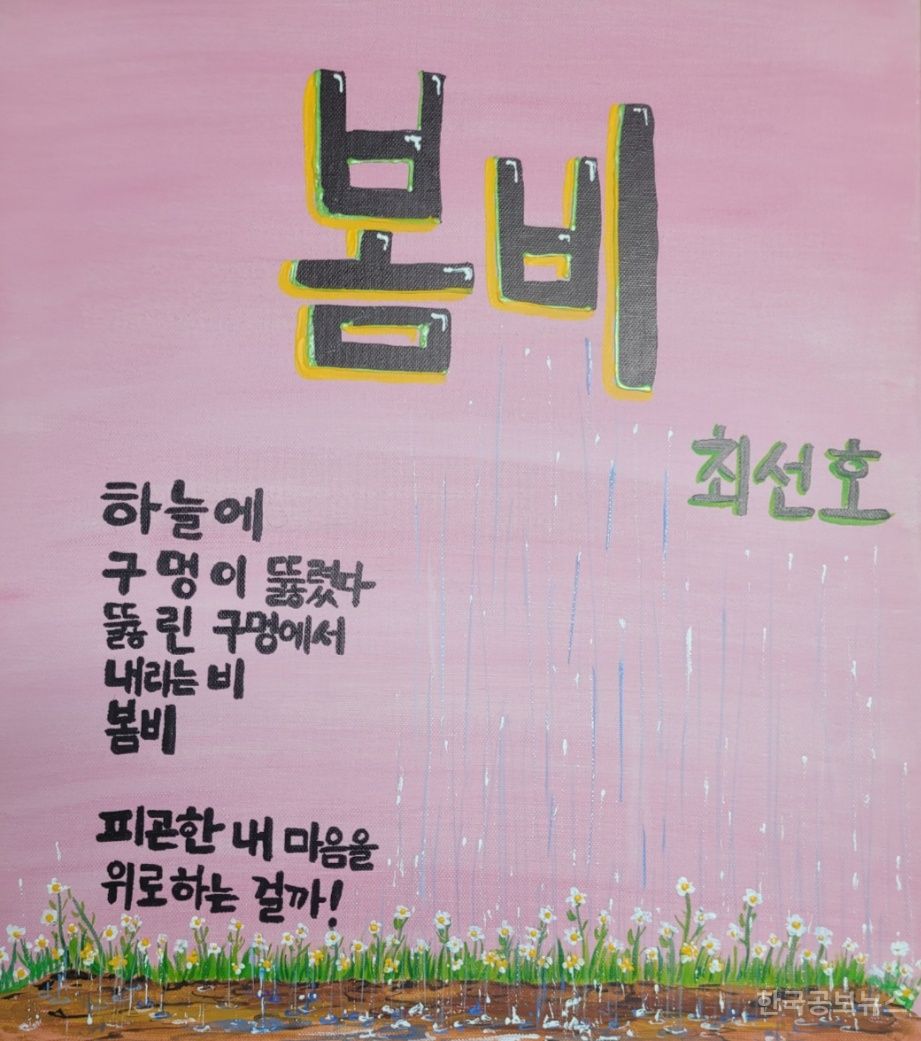 봄비
최선호
하늘에
구멍이 뚫렸다
뚫린 구멍에서
내리는 비
봄비
피곤한 내 마음을
위로하는 걸까!
한국공보뉴스